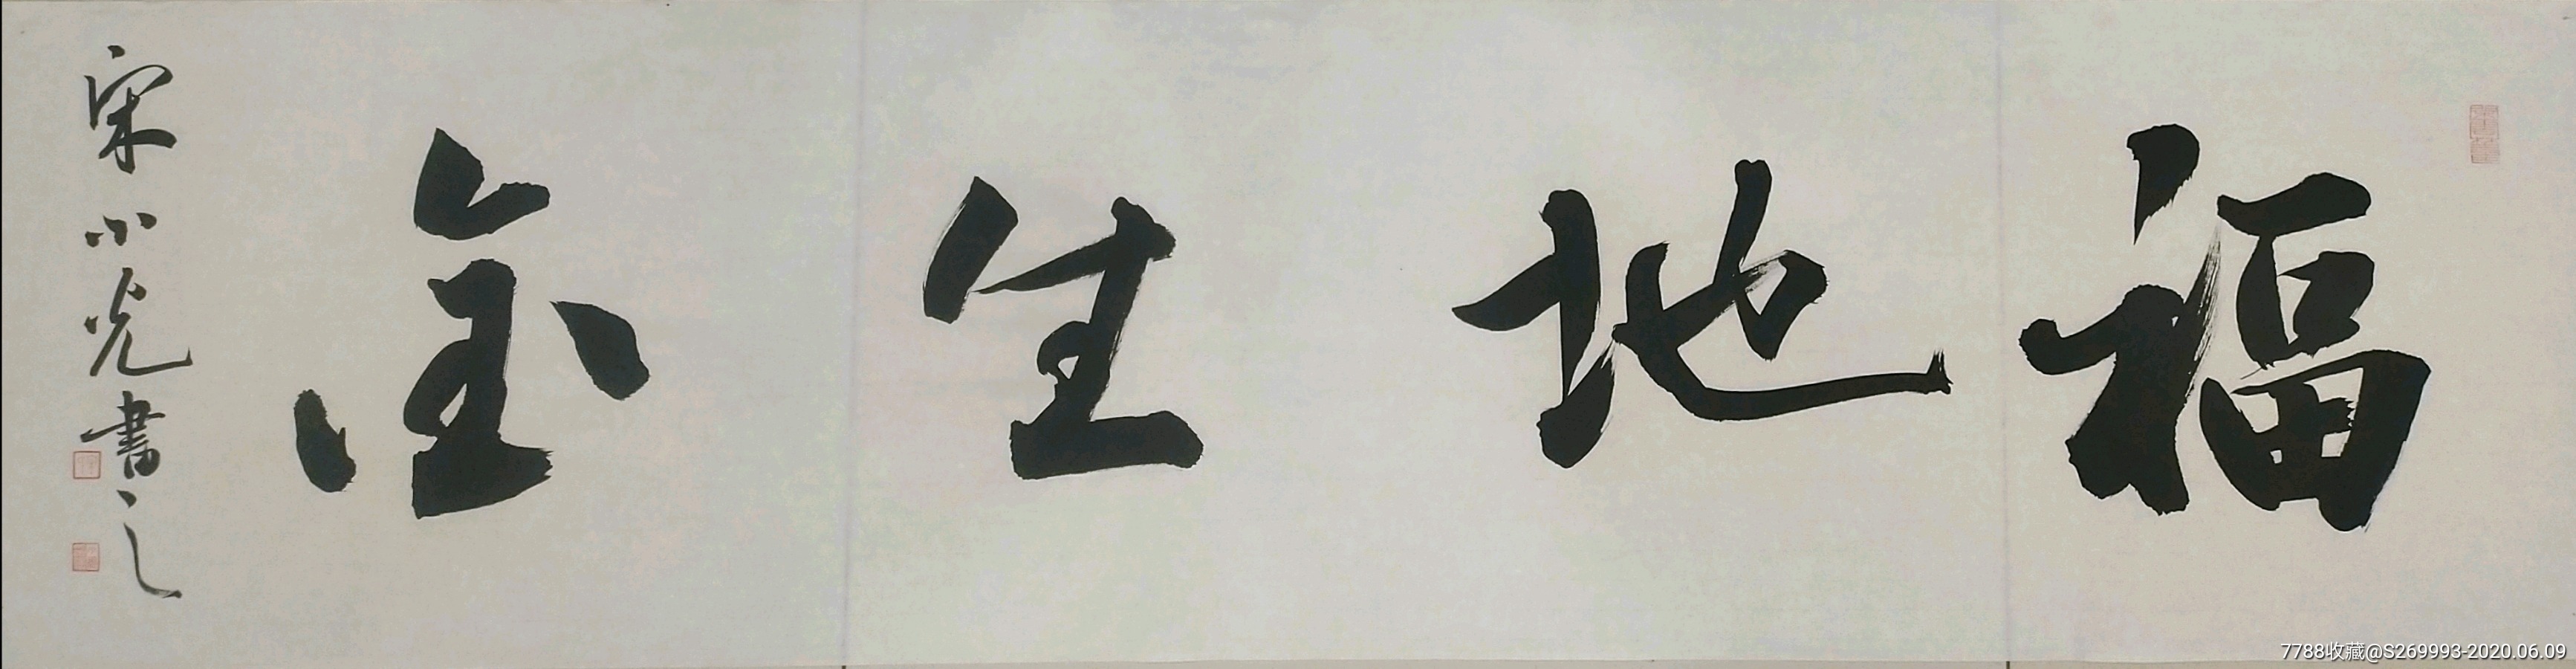 福地生金
宋小光書之
7788收藏@S269993-2020.06.09